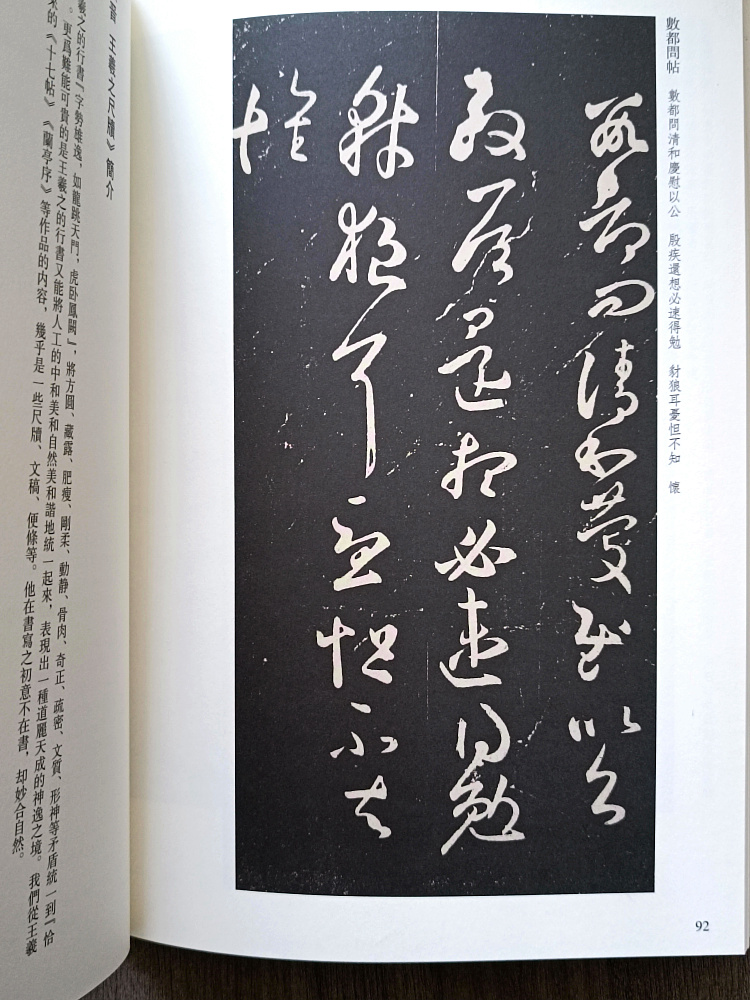 數都問帖　數都問清和慶慰以公　殷疾還想必速得勉　豺狼耳憂怛不知　懷
數都問清和慶慰以公
殷疾還想必速得勉
豺狼耳憂怛不知
懷
92
晉 王羲之尺牘》簡介
羲之的行書『字勢雄逸，如龍跳天門，虎卧鳳闕』，將方圓、藏露、肥瘦、剛柔、動静、骨肉、奇正、疏密、文質、形神等矛盾統一到『恰
。更爲難能可貴的是王羲之的行書又能將人工的中和美和自然美和諧地統一起來，表現出一種遒麗天成的神逸之境。我們從王羲
來的《十七帖》《蘭亭序》等作品的内容，幾乎是一些尺牘、文稿、便條等。他在書寫之初意不在書，却妙合自然。